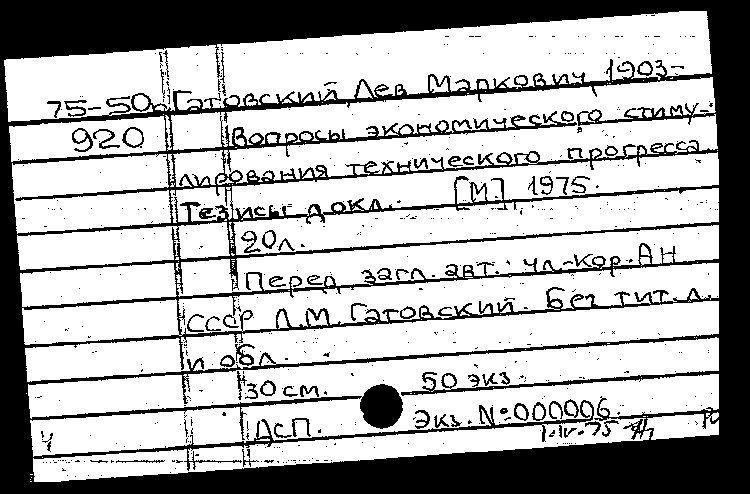 75-50п Гатовский, Лев Маркович, 1903-
920 Вопросы экономического стиму-
лирования технического прогресса.
Тезисы докл. [М.], 1975.
20л.
Перед загл. авт.: чл.-кор. АН
СССР Л.М. Гатовский. Без тит. л.
и обл.
30 см. 50 экз.
ДСП. Экз. № 000006.
Ч 1.IV-75